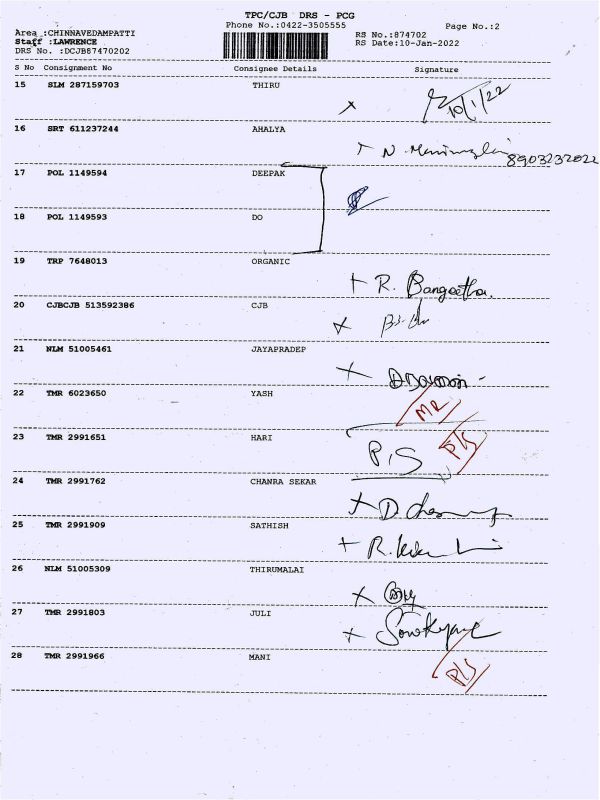 TPC/CJB DRS - PCG
Phone No.:0422-3505555
Page No.:2
Area :CHINNAVEDAMPATTI
RS No.:874702
Staff :LAWRENCE
RS Date:10-Jan-2022
DRS No. :DCJB87470202
S No Consignment No Consignee Details Signature
15 SLM 287159703 THIRU
10/1/22
16 SRT 611237244 AHALYA
8903232022
17 POL 1149594 DEEPAK
18 POL 1149593 DO
19 TRP 7648013 ORGANIC
R. Bangeetha.
20 CJBCJB 513592386 CJB
21 NLM 51005461 JAYAPRADEP
22 TMR 6023650 YASH
MR
23 TMR 2991651 HARI
P/S
P/S
24 TMR 2991762 CHANRA SEKAR
25 TMR 2991909 SATHISH
26 NLM 51005309 THIRUMALAI
27 TMR 2991803 JULI
28 TMR 2991966 MANI
P/S